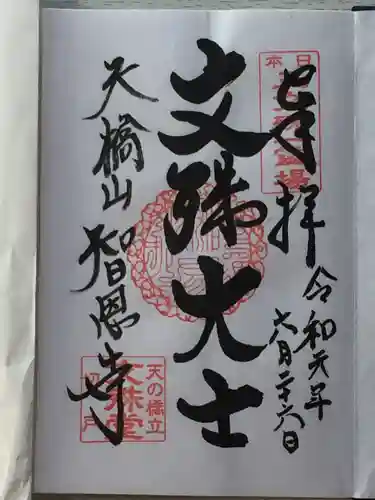 奉拝
令和元年
六月二十六日
日本
文殊大士
天橋山
智恩寺
天の橋立
文殊堂
切戸